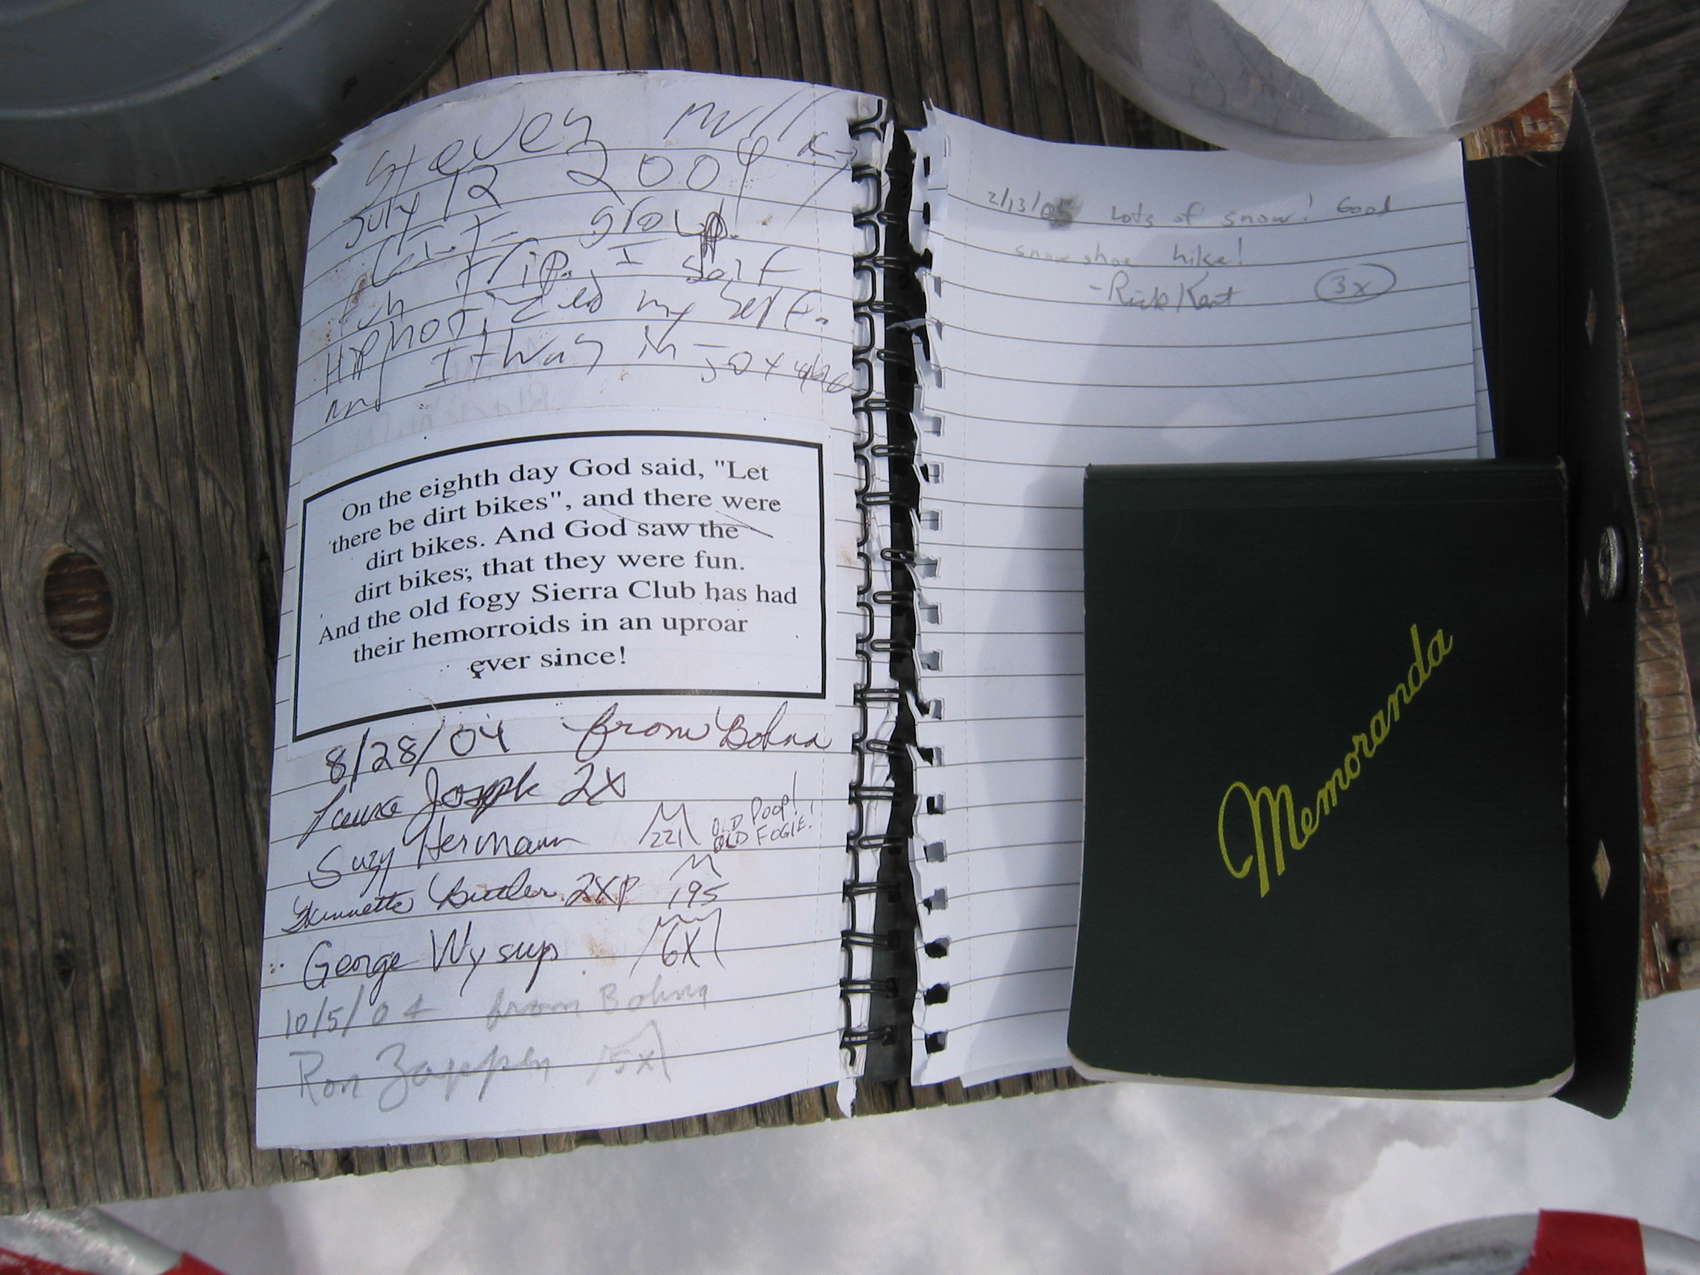 Steven
July 12 2004
C.I.T. group.
fun trip. I
Hiphotized my self.
It was in
On the eighth day God said, "Let
there be dirt bikes", and there were
dirt bikes. And God saw the
dirt bikes; that they were fun.
And the old fogy Sierra Club has had
their hemorroids in an uproar
ever since!
8/28/04 from Bohna
Joseph 2X
Suzy Hermann 221 OLD POOP!
OLD FOGIE!
Butler 2XP 195
George Wysup 6X
10/5/04 from Bohna
Ron Zappen 5x
2/13/05 Lots of snow! Good
snowshoe hike!
-Rick Kent 3x
Memoranda